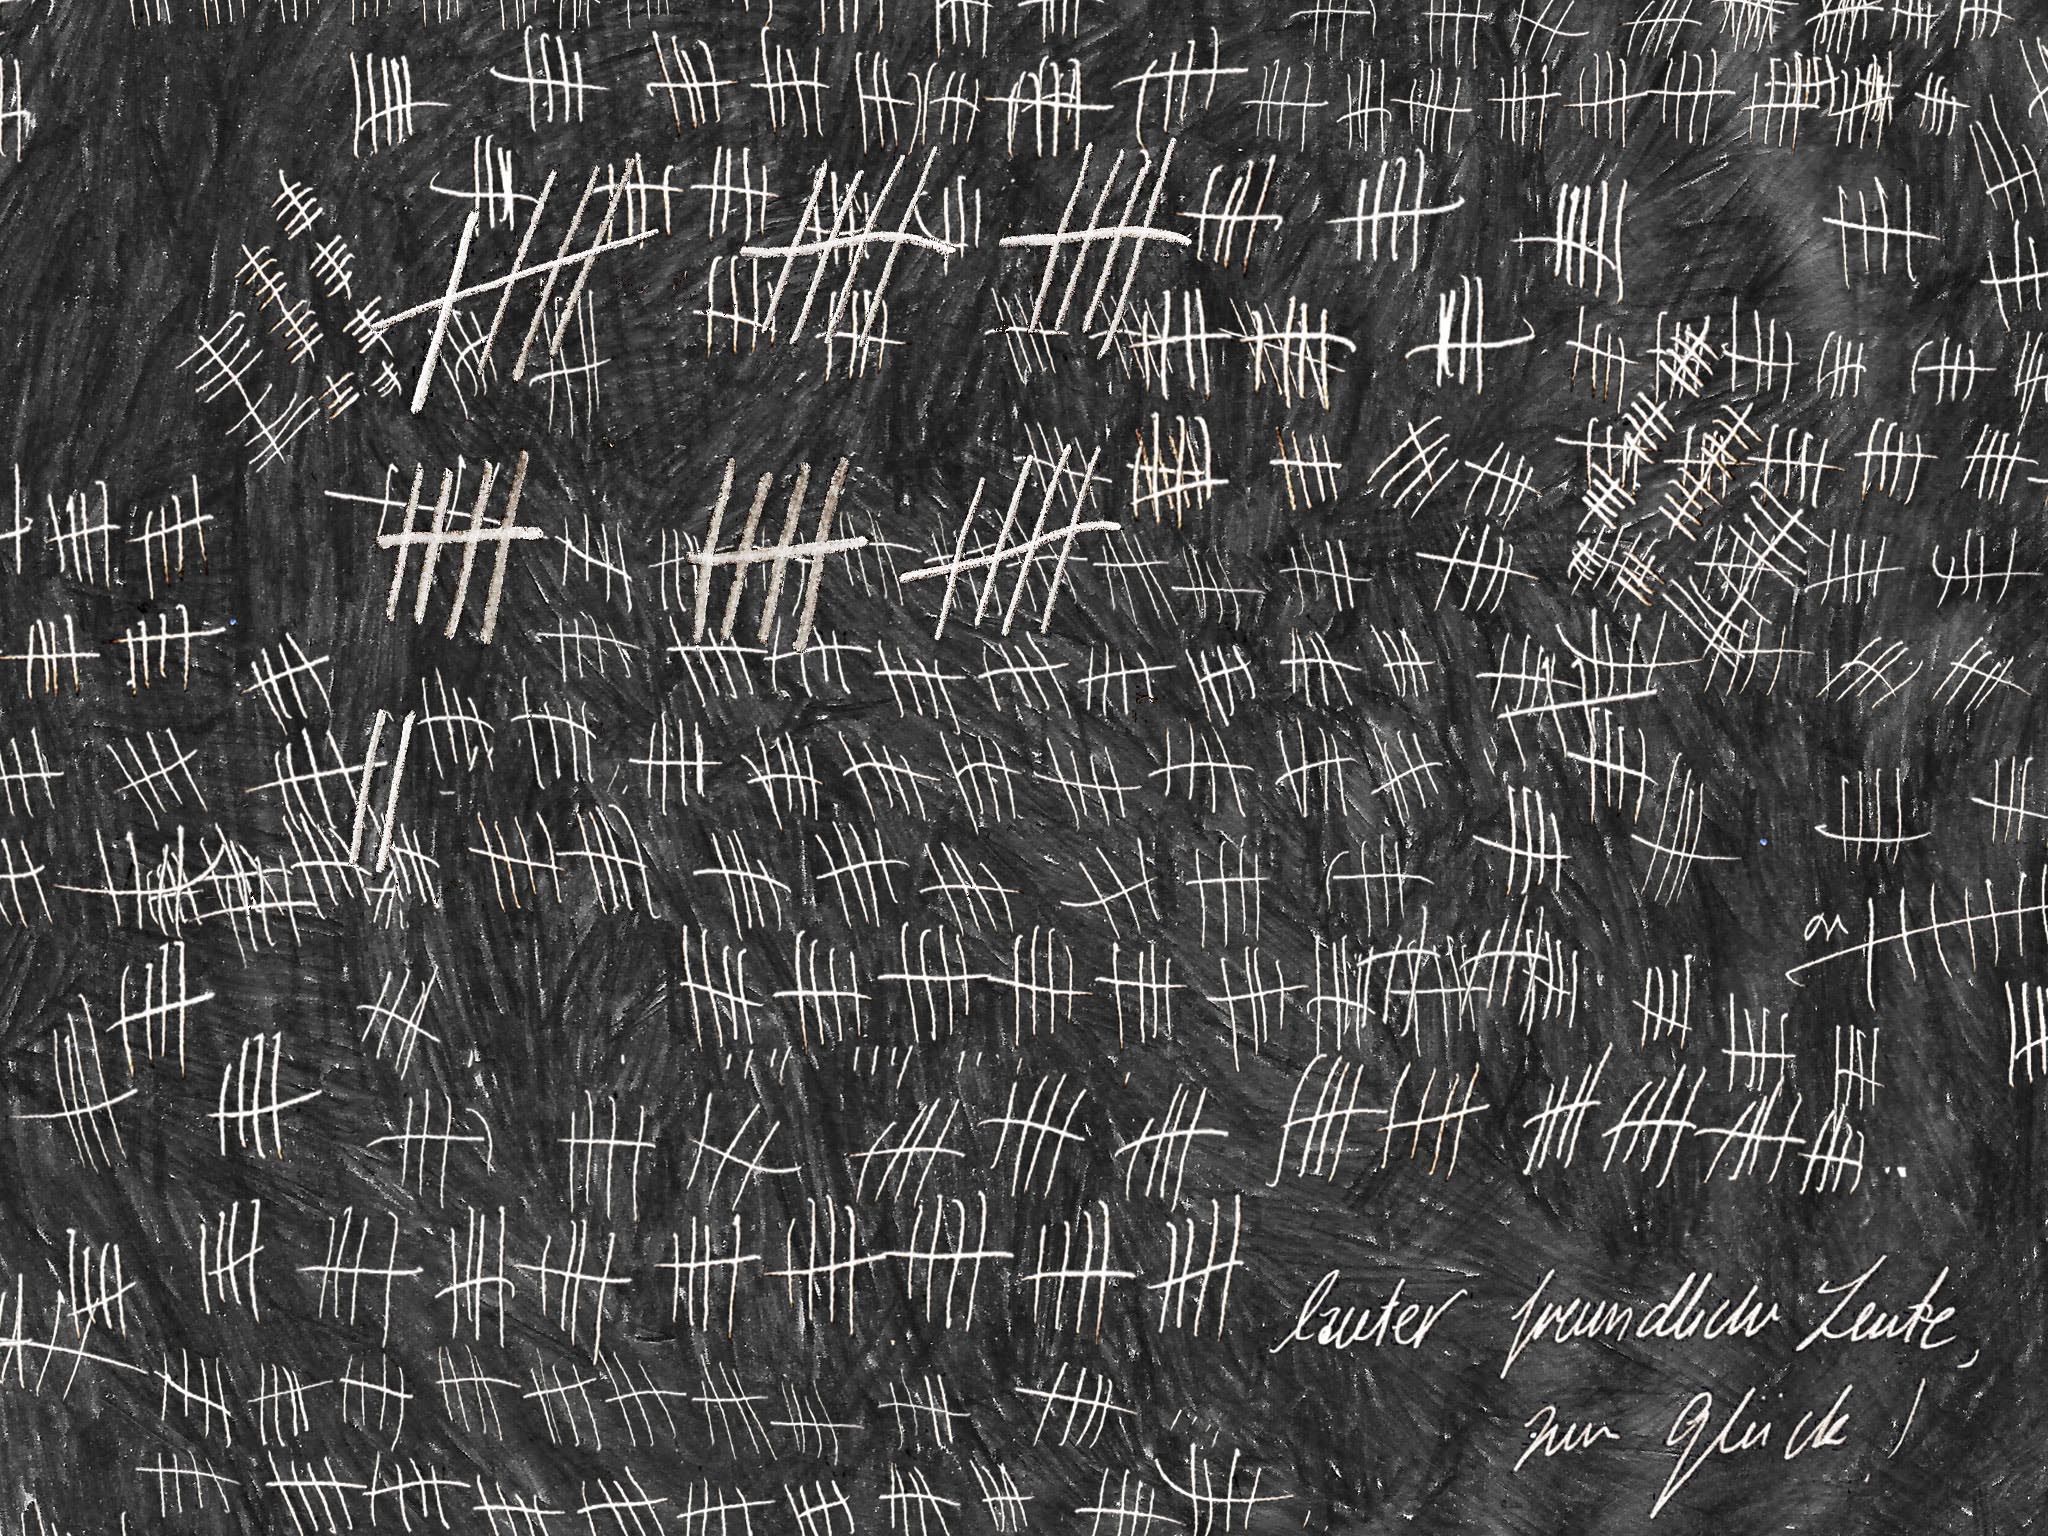 lauter freundliche Leute,
zum Glück!